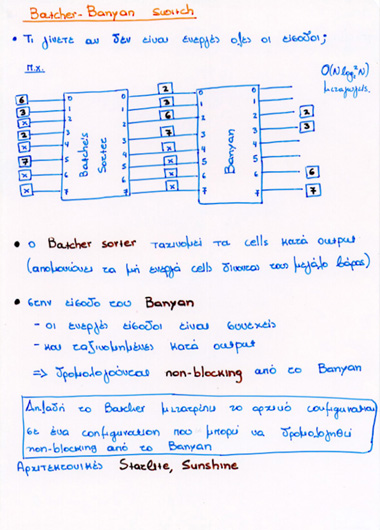 Batcher-Banyan switch
• Τι γίνεται αν δεν είναι ενεργές όλες οι είσοδοι;
π.χ.
O(N log₂² N)
μεταγωγείς.
6 0 0 2 0 0
3 1 1 3 1 1
x 2 2 6 2 2 2
2 3 3 7 3 3 3
x 4 4 x 4 4
7 5 5 x 5 5
x 6 6 x 6 6 6
x 7 7 x 7 7 7
Batcher's Sorter
Banyan
• ο Batcher sorter ταξινομεί τα cells κατά output
(απομονώνει τα μη ενεργά cells δίνοντας τους μεγάλο βάρος)
• στην είσοδο του Banyan
- οι ενεργές είσοδοι είναι συνεχείς
- και ταξινομημένες κατά output
=> δρομολογούνται non-blocking από το Banyan
Δηλαδή το Batcher μετατρέπει το αρχικό configuration
σε ένα configuration που μπορεί να δρομολογηθεί
non-blocking από το Banyan
Αρχιτεκτονικές Starlite, Sunshine